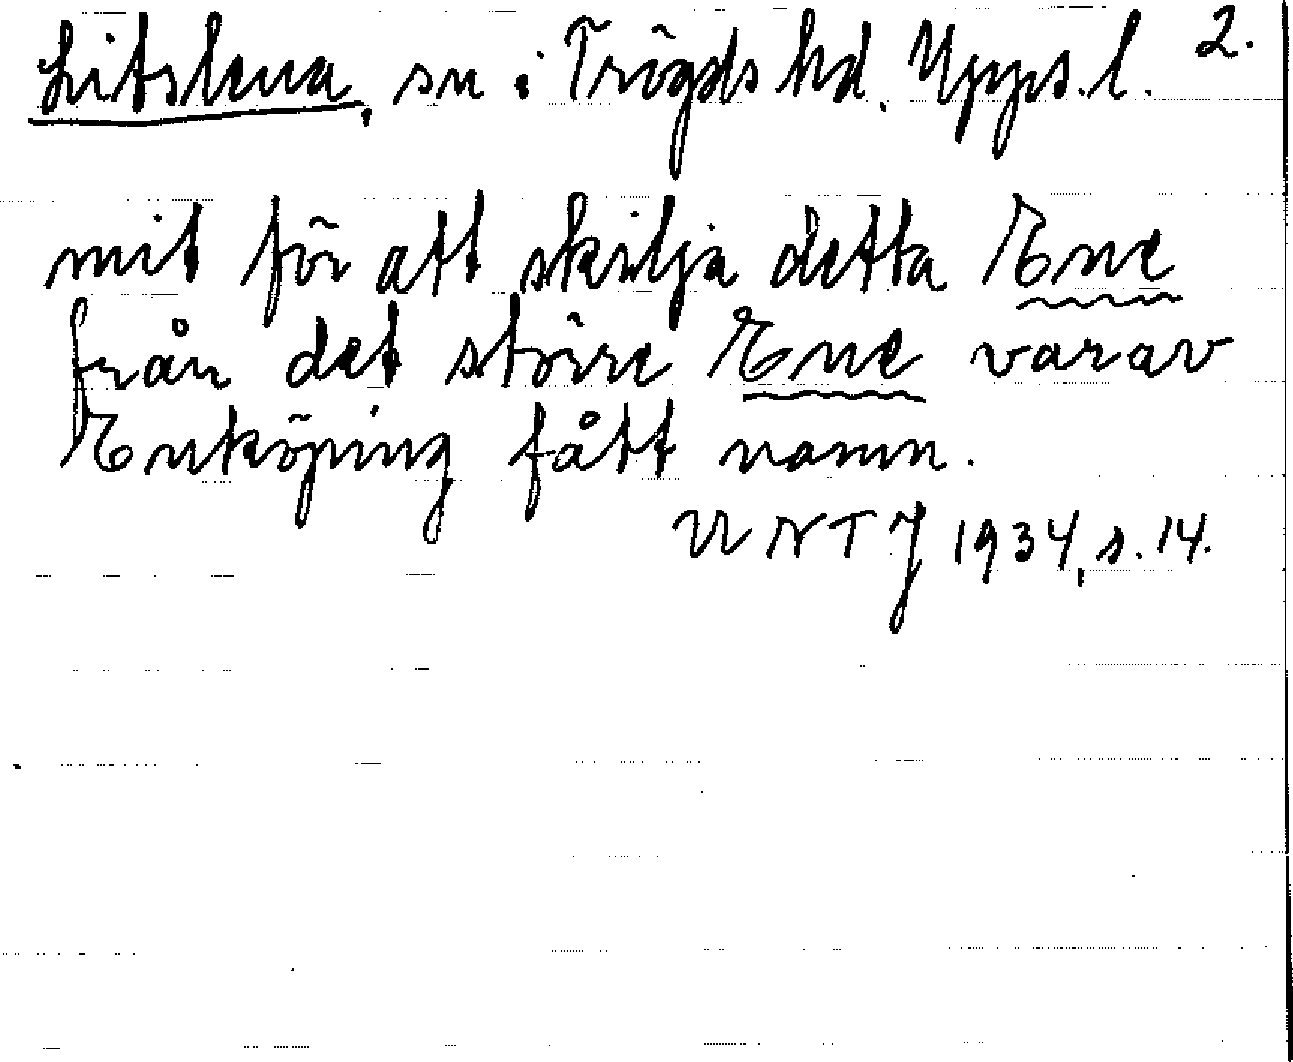 Litslena, sn i Trögds hd. Upps. l. 2.
mit för att skilja detta Ene
från det större Ene varav
Enköping fått namn.
UNTJ 1934, s. 14.